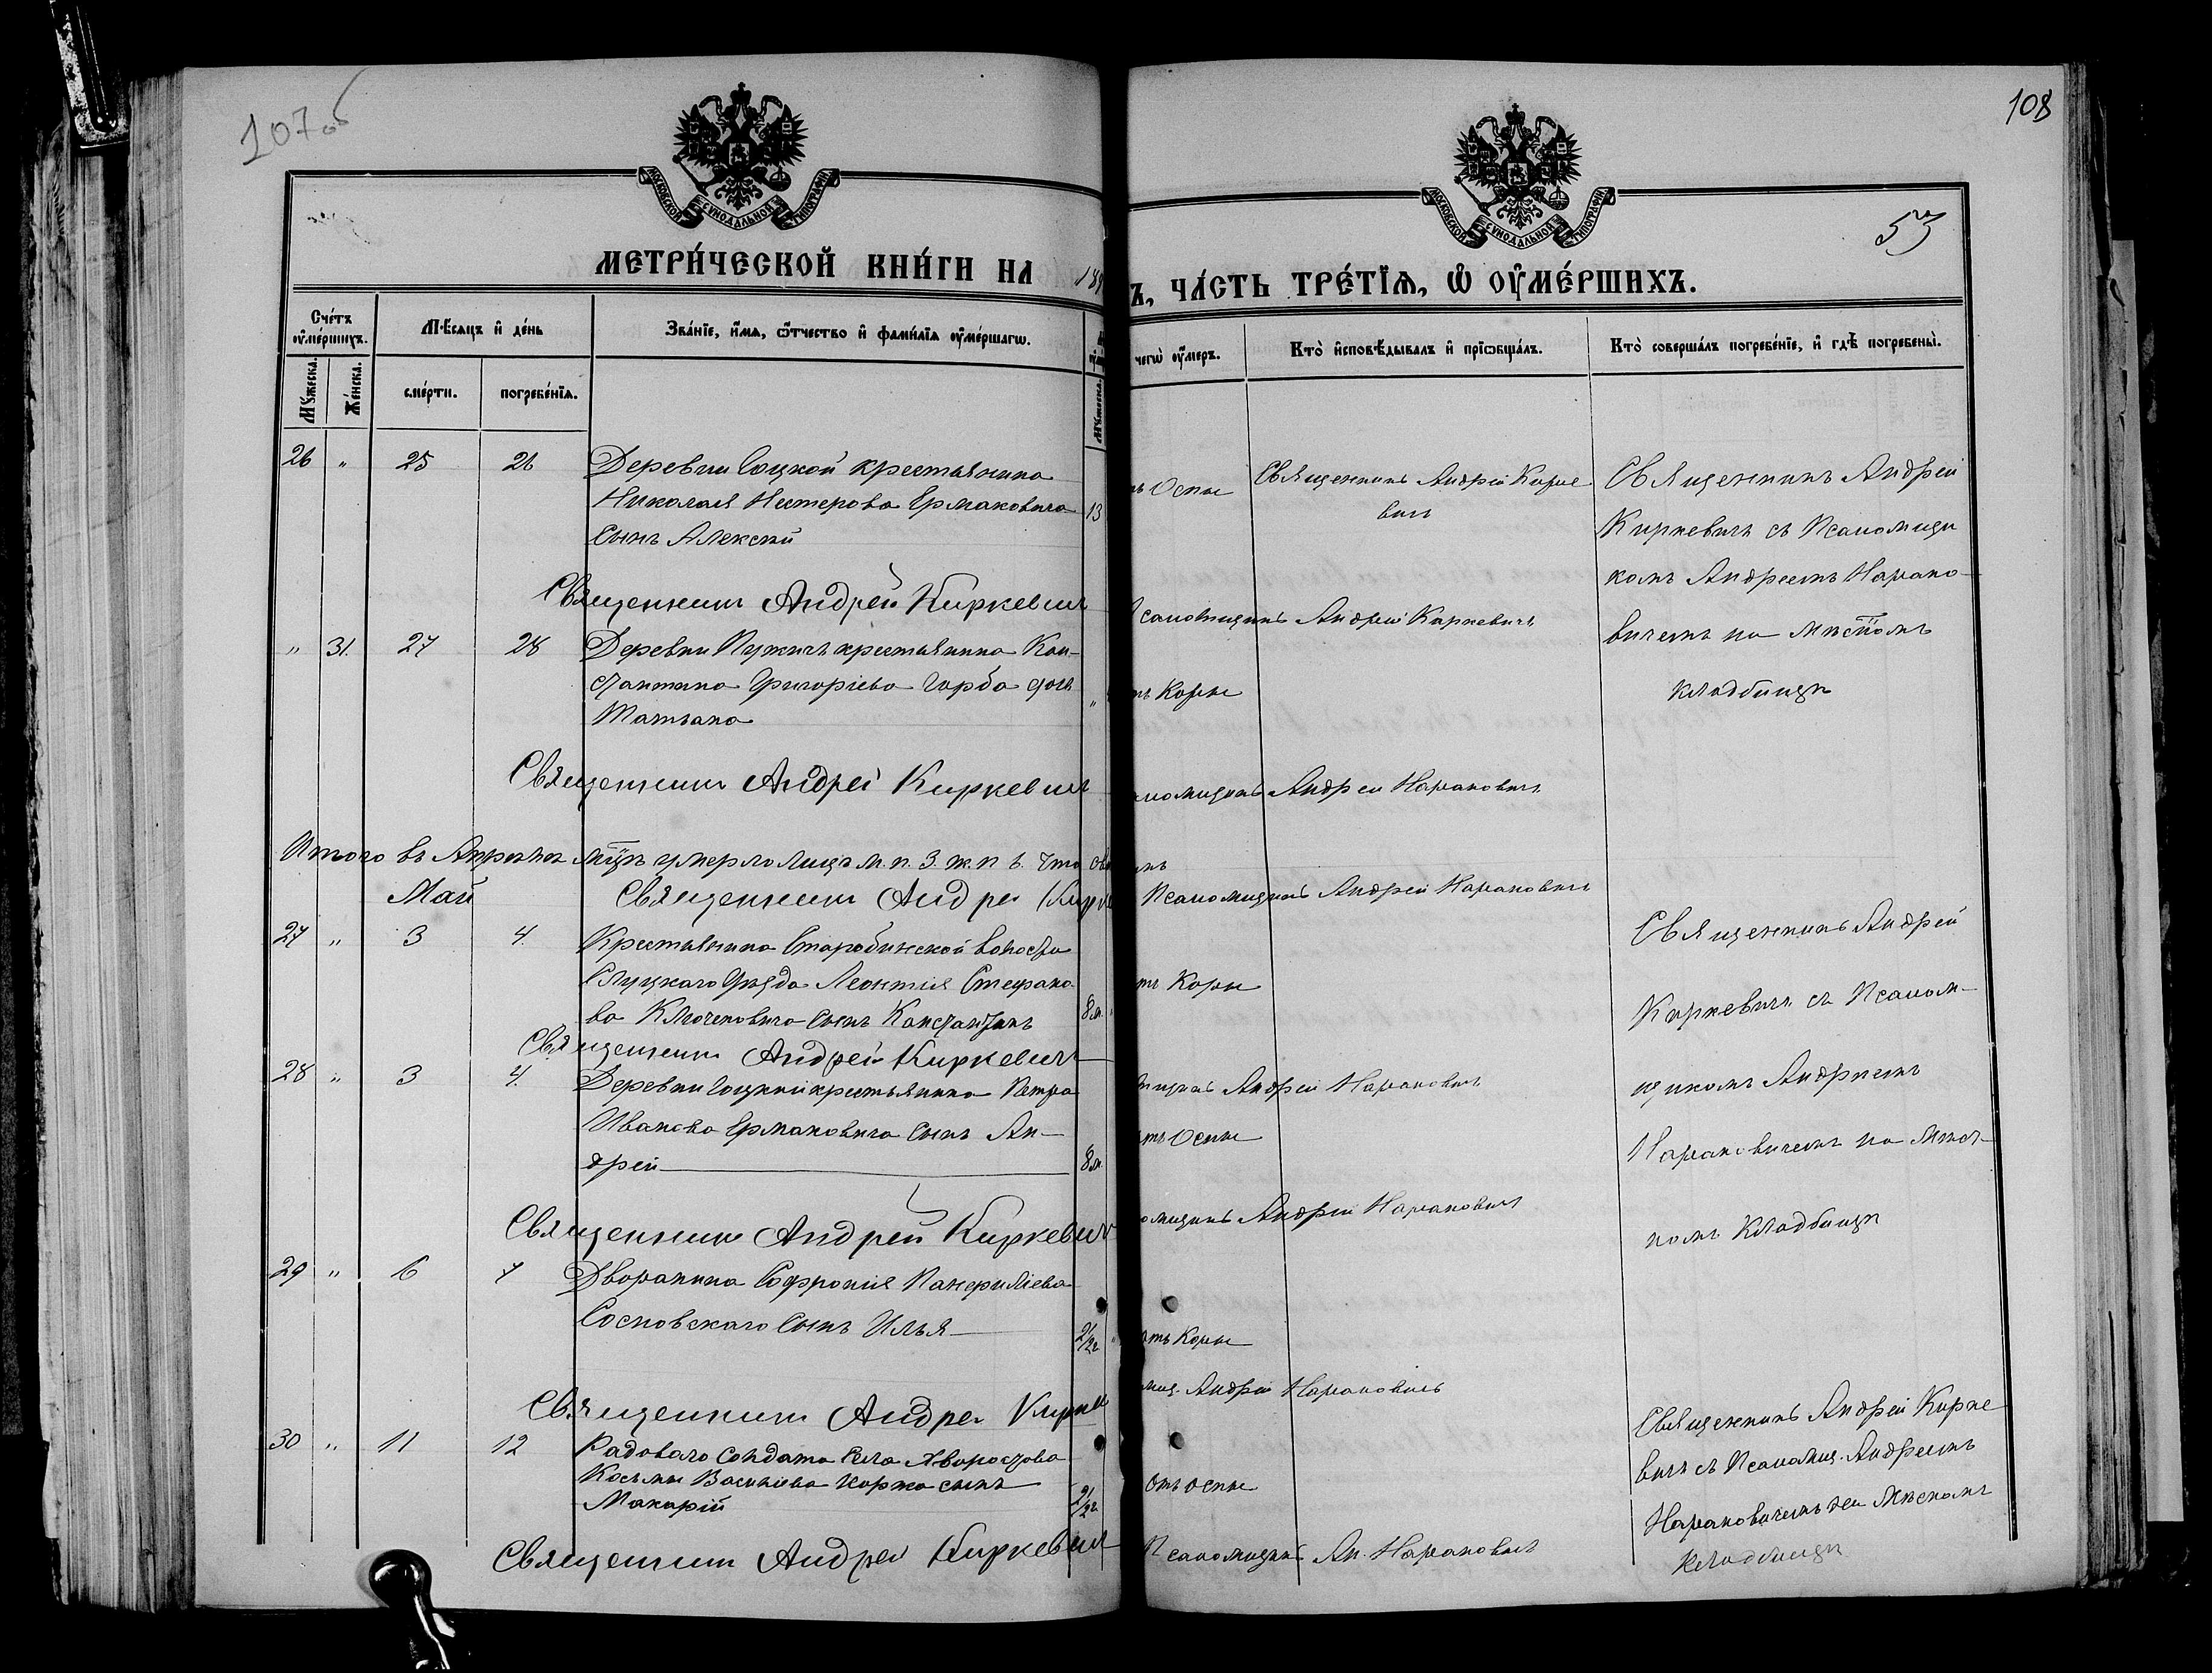 107 об
108
53
МОСКОВСКОЙ СѴНОДАЛЬНОЙ ТИПОГРАФІИ
МОСКОВСКОЙ СѴНОДАЛЬНОЙ ТИПОГРАФІИ
МЕТРИ́ЧЕСКОЙ КНИ́ГИ НА 189
Ъ, ЧА́СТЬ ТРЕ́ТІѦ, Ѡ҆ ОУ҆МЕ́РШИХЪ.
Сче́тъ оу҆ме́ршихъ.
Мꙋ́жеска.
Же́нска.
Мѣ́сяцъ и҆ де́нь
сме́рти.
погребе́нїѧ.
Зва́нїе, и҆́мѧ, ѻ҆́тчество и҆ фами́лїѧ оу҆ме́ршагѡ.
Мꙋ́жеска.
чегѡ̀ оу҆́меръ.
Кто̀ и҆сповѣ́дывалъ и҆ прїѡбща́лъ.
Кто̀ соверша́лъ погребе́нїе, и҆ гдѣ̀ погребены̀.
26 " 25 26 Деревни Гоцкой крестьянина
Николая Нестерова Ермаковича 13
Сынъ Алексій
ъ Оспы
Священникъ Андрей Кирке
вичъ
Священникъ Андрей
Киркевичъ съ Псаломщи
комъ Андреемъ Нарано-
вичемъ на мѣстномъ
кладбищѣ
Священникъ Андрей Киркевичъ
саломщикъ Андрей
" 31. 27 28 Деревни Пужичъ крестьянина Кон-
стантина Григоріева Горба дочь
Татьяна
ъ Кори
Священникъ Андрей Киркевичъ
ломщикъ Андрей Наранович
Итого въ Апрѣлѣ мцѣ умерло лицъ м. п. 3. ж. п 6. что
Май
Священникъ Андрей Кирке
Псаломщикъ Андрей Нарановичъ
27 " 3 4. Крестьянина Старобинской волости
Слуцкаго Уѣзда Леонтія Стефано
ва Ключеновича сынъ Константинъ 8 м.
тъ Кори
Священникъ Андрей
Киркевичъ съ Псалом-
щикомъ Андреемъ
Нарановичемъ на мѣст-
номъ Кладбищѣ
Священникъ Андрей Киркевичъ
мщикъ Андрей Нарановичъ
28 " 3 4. Деревни Гоцкой крестьянина Петра
Иванова Ермаковича сынъ Ан-
дрей 8 м.
отъ Оспы
Священникъ Андрей Киркевич
омщикъ Андрей Нарановичъ
29 " 6 7 Дворянина Софронія Панфиліева
Сосновскаго сынъ Илья
отъ Кори
Священникъ Андрей Кирке
мщ. Андрей Нарановичъ
30 " 11 12 Рядоваго солдата села Яворостова
Косьмы Василіева Коржа сынъ
Макарій
отъ оспы
Священникъ Андрей Кирке
вичъ съ Псаломщ. Андреемъ
Нарановичемъ на мѣсномъ
кладбищѣ
Священникъ Андрей Киркевич
Псаломщикъ Ан. Нарановичъ